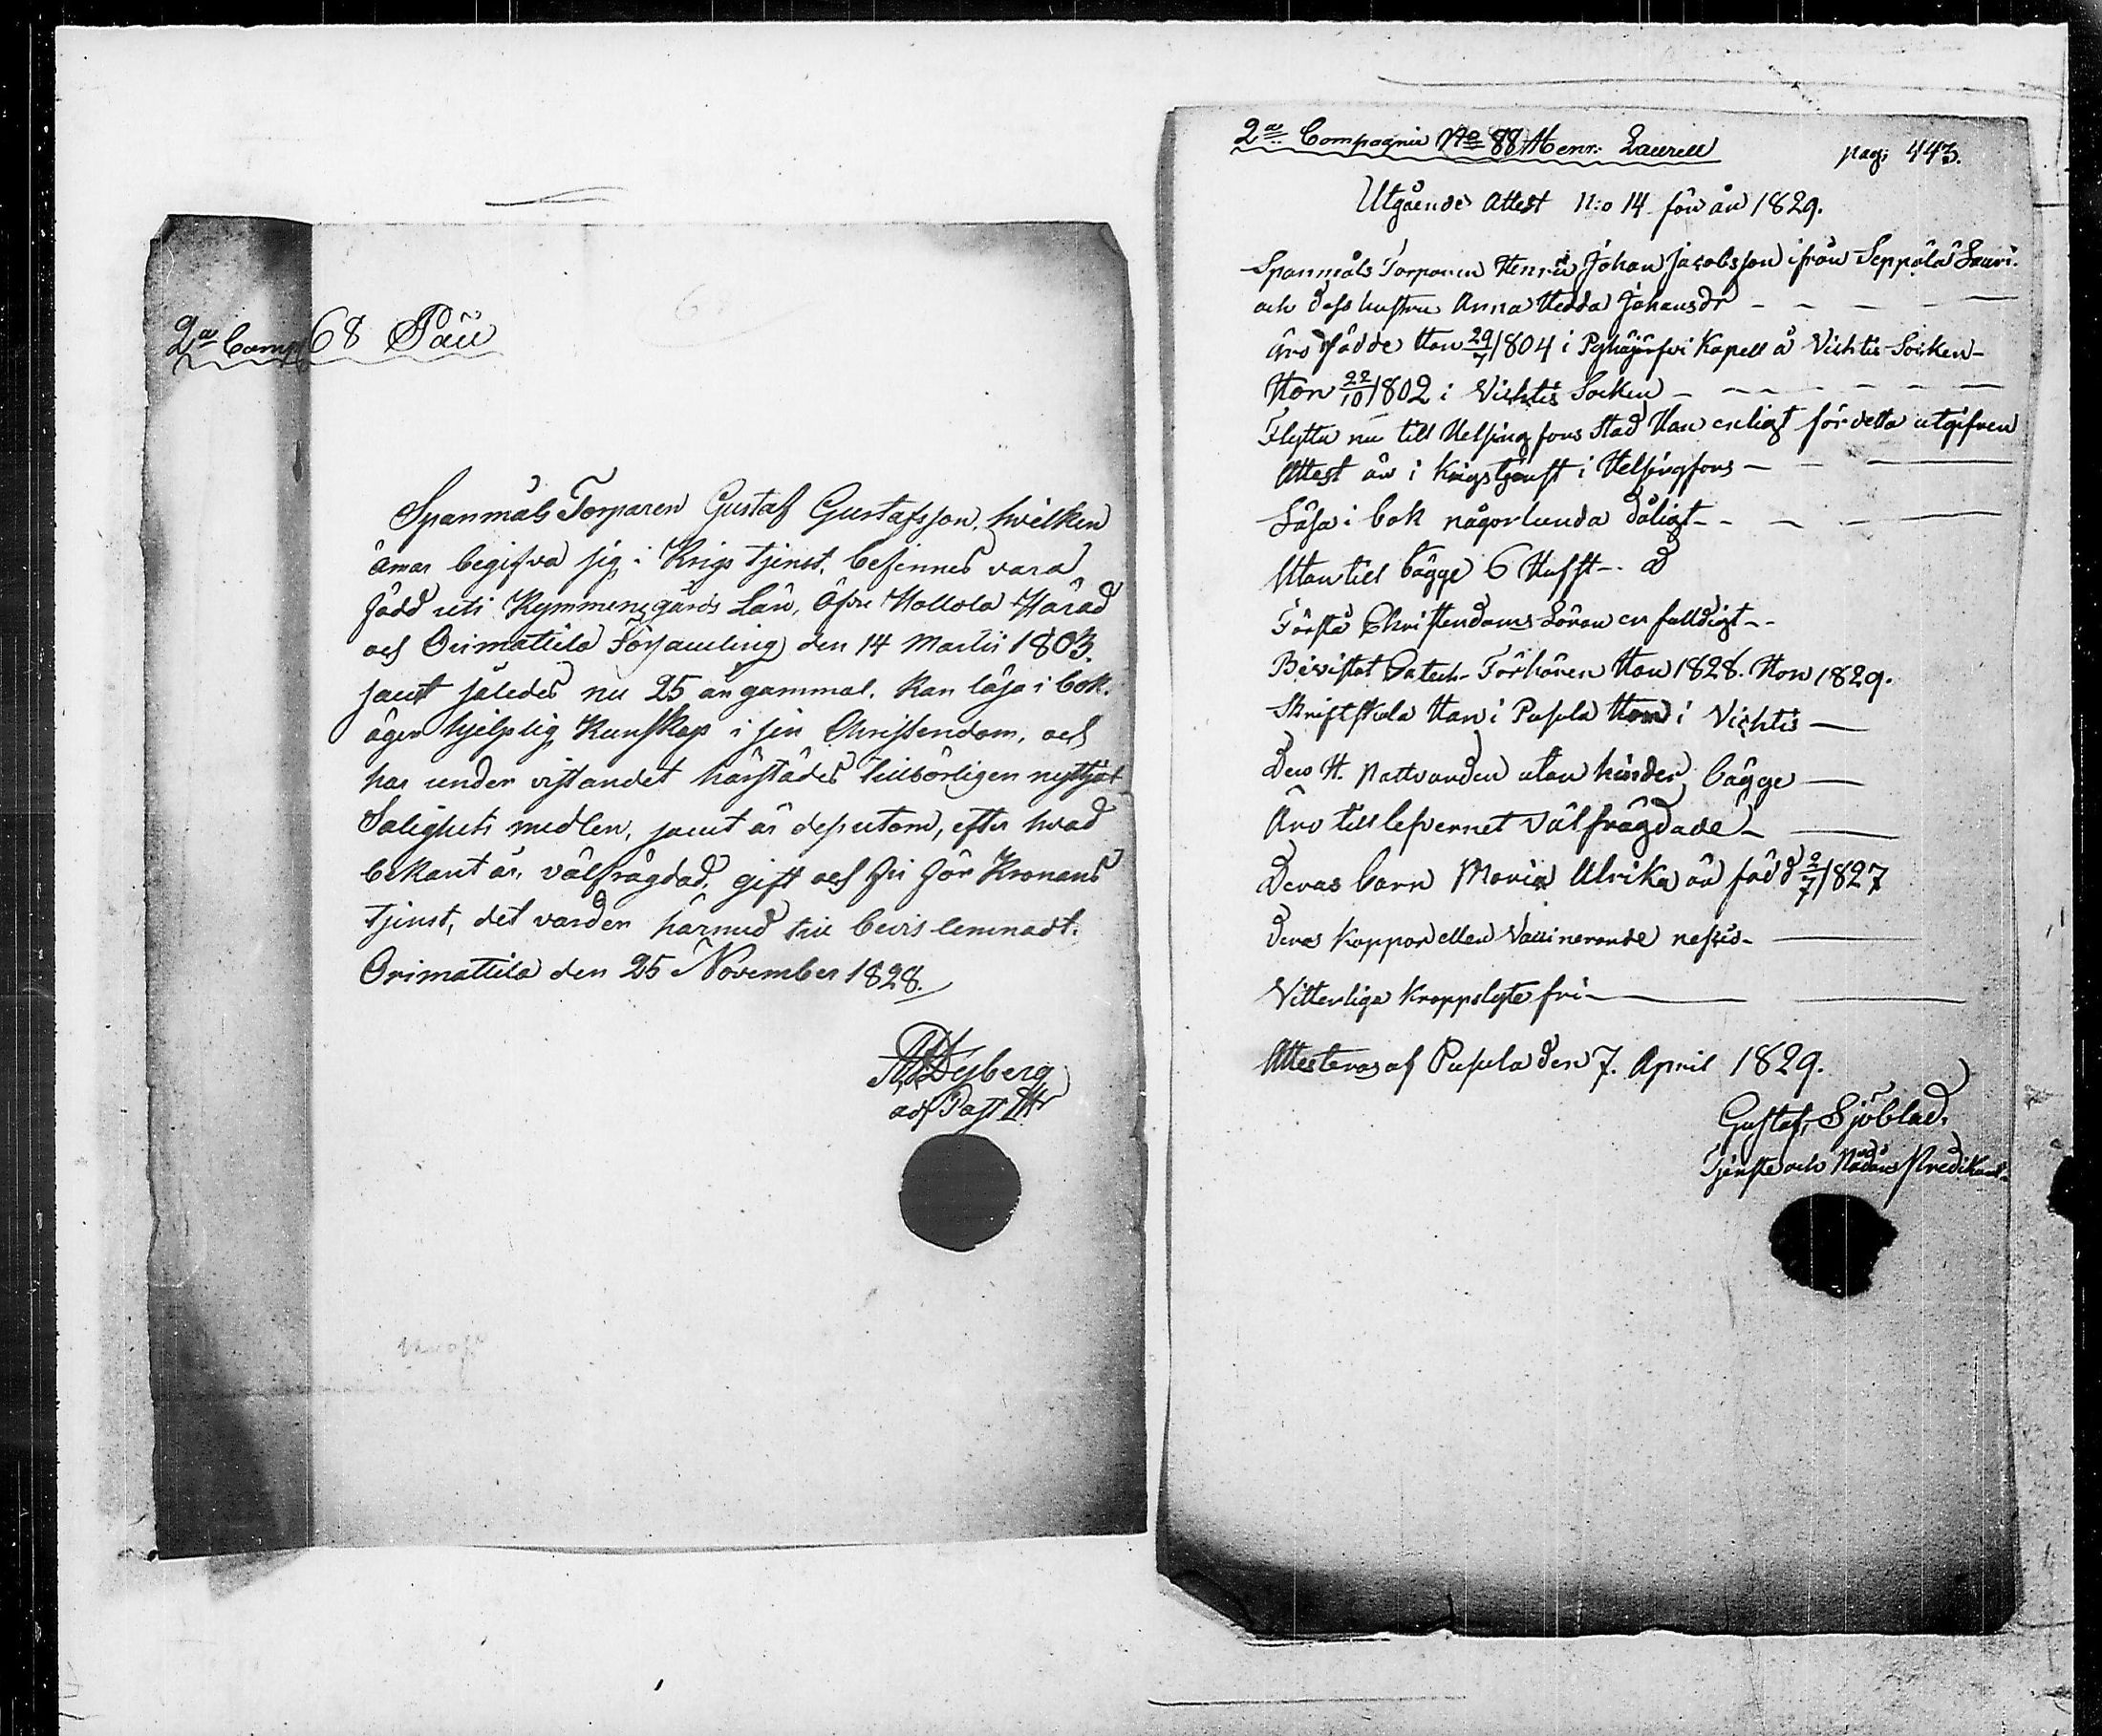 2a Comp 68 Päii
Spanmåls Torparen Gustaf Gustafsson, hvilken
ämar begifva sig i Krigs tjenst, befinnes vara
född uti Kymmenegårds Län, Öfre Hollola Härad
och Orimattila Församling den 14 Martii 1803.
samt således nu 25 år gammal. Kan läsa i bok.
äger hjelplig Kunskap i sin Christendom, och
har under vistandet härstädes tillbörligen nyttjat
Salighets medlen, samt är dessutom, efter hvad
bekant är, välfrägdad, gift och fri för Kronans
tjenst, det varder härmed till bevis lemnadt.
Orimattila den 25 November 1828.
Dyberg
adj Past
2a Compagnie No 88 Henr: Laurell pag: 443.
Utgående Attest N:o 14 för år 1829.
Spanmåls Torparen Henric Johan Jacobsson ifrån Seppälä Lauri.
och dess hustru Anna Hedda Johansdr
äro födde Han 29/7 1804 i Pyhäjärfvi Kapell å Vichtis Socken
Hon 22/10 1802 i Vichtis Socken
Flytta nu till Helsingfors Stad Han enligt för detta utgifven
Attest är i Krigstjenst i Helsingfors
Läsa i bok någorlunda dåligt
Utantill bägge 6 Hufst
Förstå Christendoms Läran enfalldigt
Bivistat Catech-Förhören Han 1828. Hon 1829.
Skriftskola Han i Pusula Hon i Vichtis
Den H. Nattvarden utan hinder bägge
Äro till lefvernet välfrägdade
Deras barn Maria Ulrika är född 2/7 1827
Deras Koppor eller Vaccinerande
Vitterliga Kroppslyte fri
Attesteras af Pusula den 7. April 1829.
Gustaf Sjöblad.
Tjenste och Nådårs Predikant